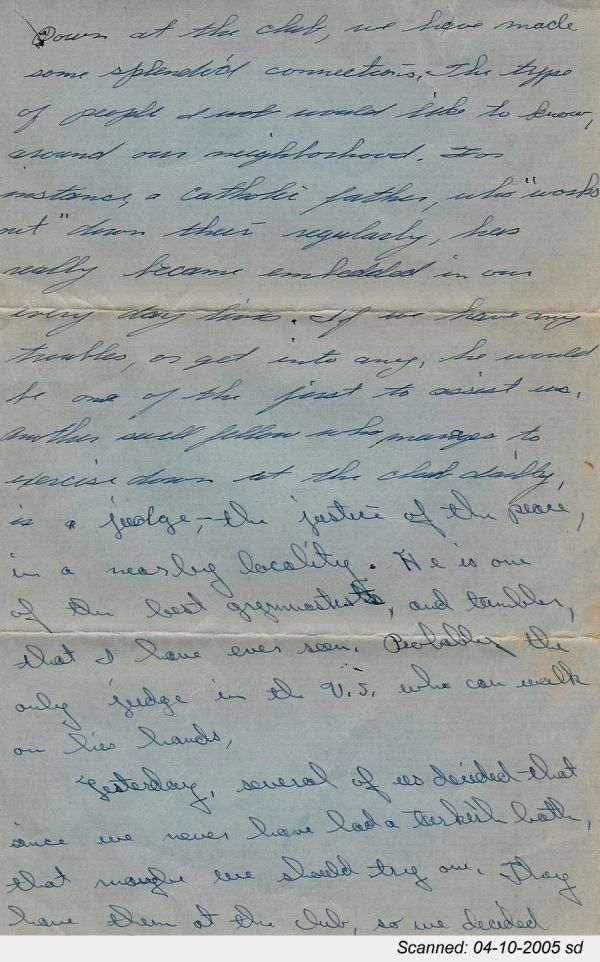 Down at the club, we have made
some splendid connections, The type
of people I would like to know,
around our neighborhood. For
instance, a catholic father, who "works
out" down their regularly, has
really became embedded in our
every day lives. If we have any
troubles, or get into any, he would
be one of the first to assist us.
Another swell fellow who manages to
exercise down at the club dailly,
is a judge, - the justice of the peace,
in a nearby locality. He is one
of the best gymnastists, and tumbler,
that I have ever seen. Probabley the
only judge in the U.S. who can walk
on his hands,
Yesterday, several of us decided that
since we never have had a turkish bath,
that maybe we should try one. They
have them at the club, so we decided
Scanned: 04-10-2005 sd